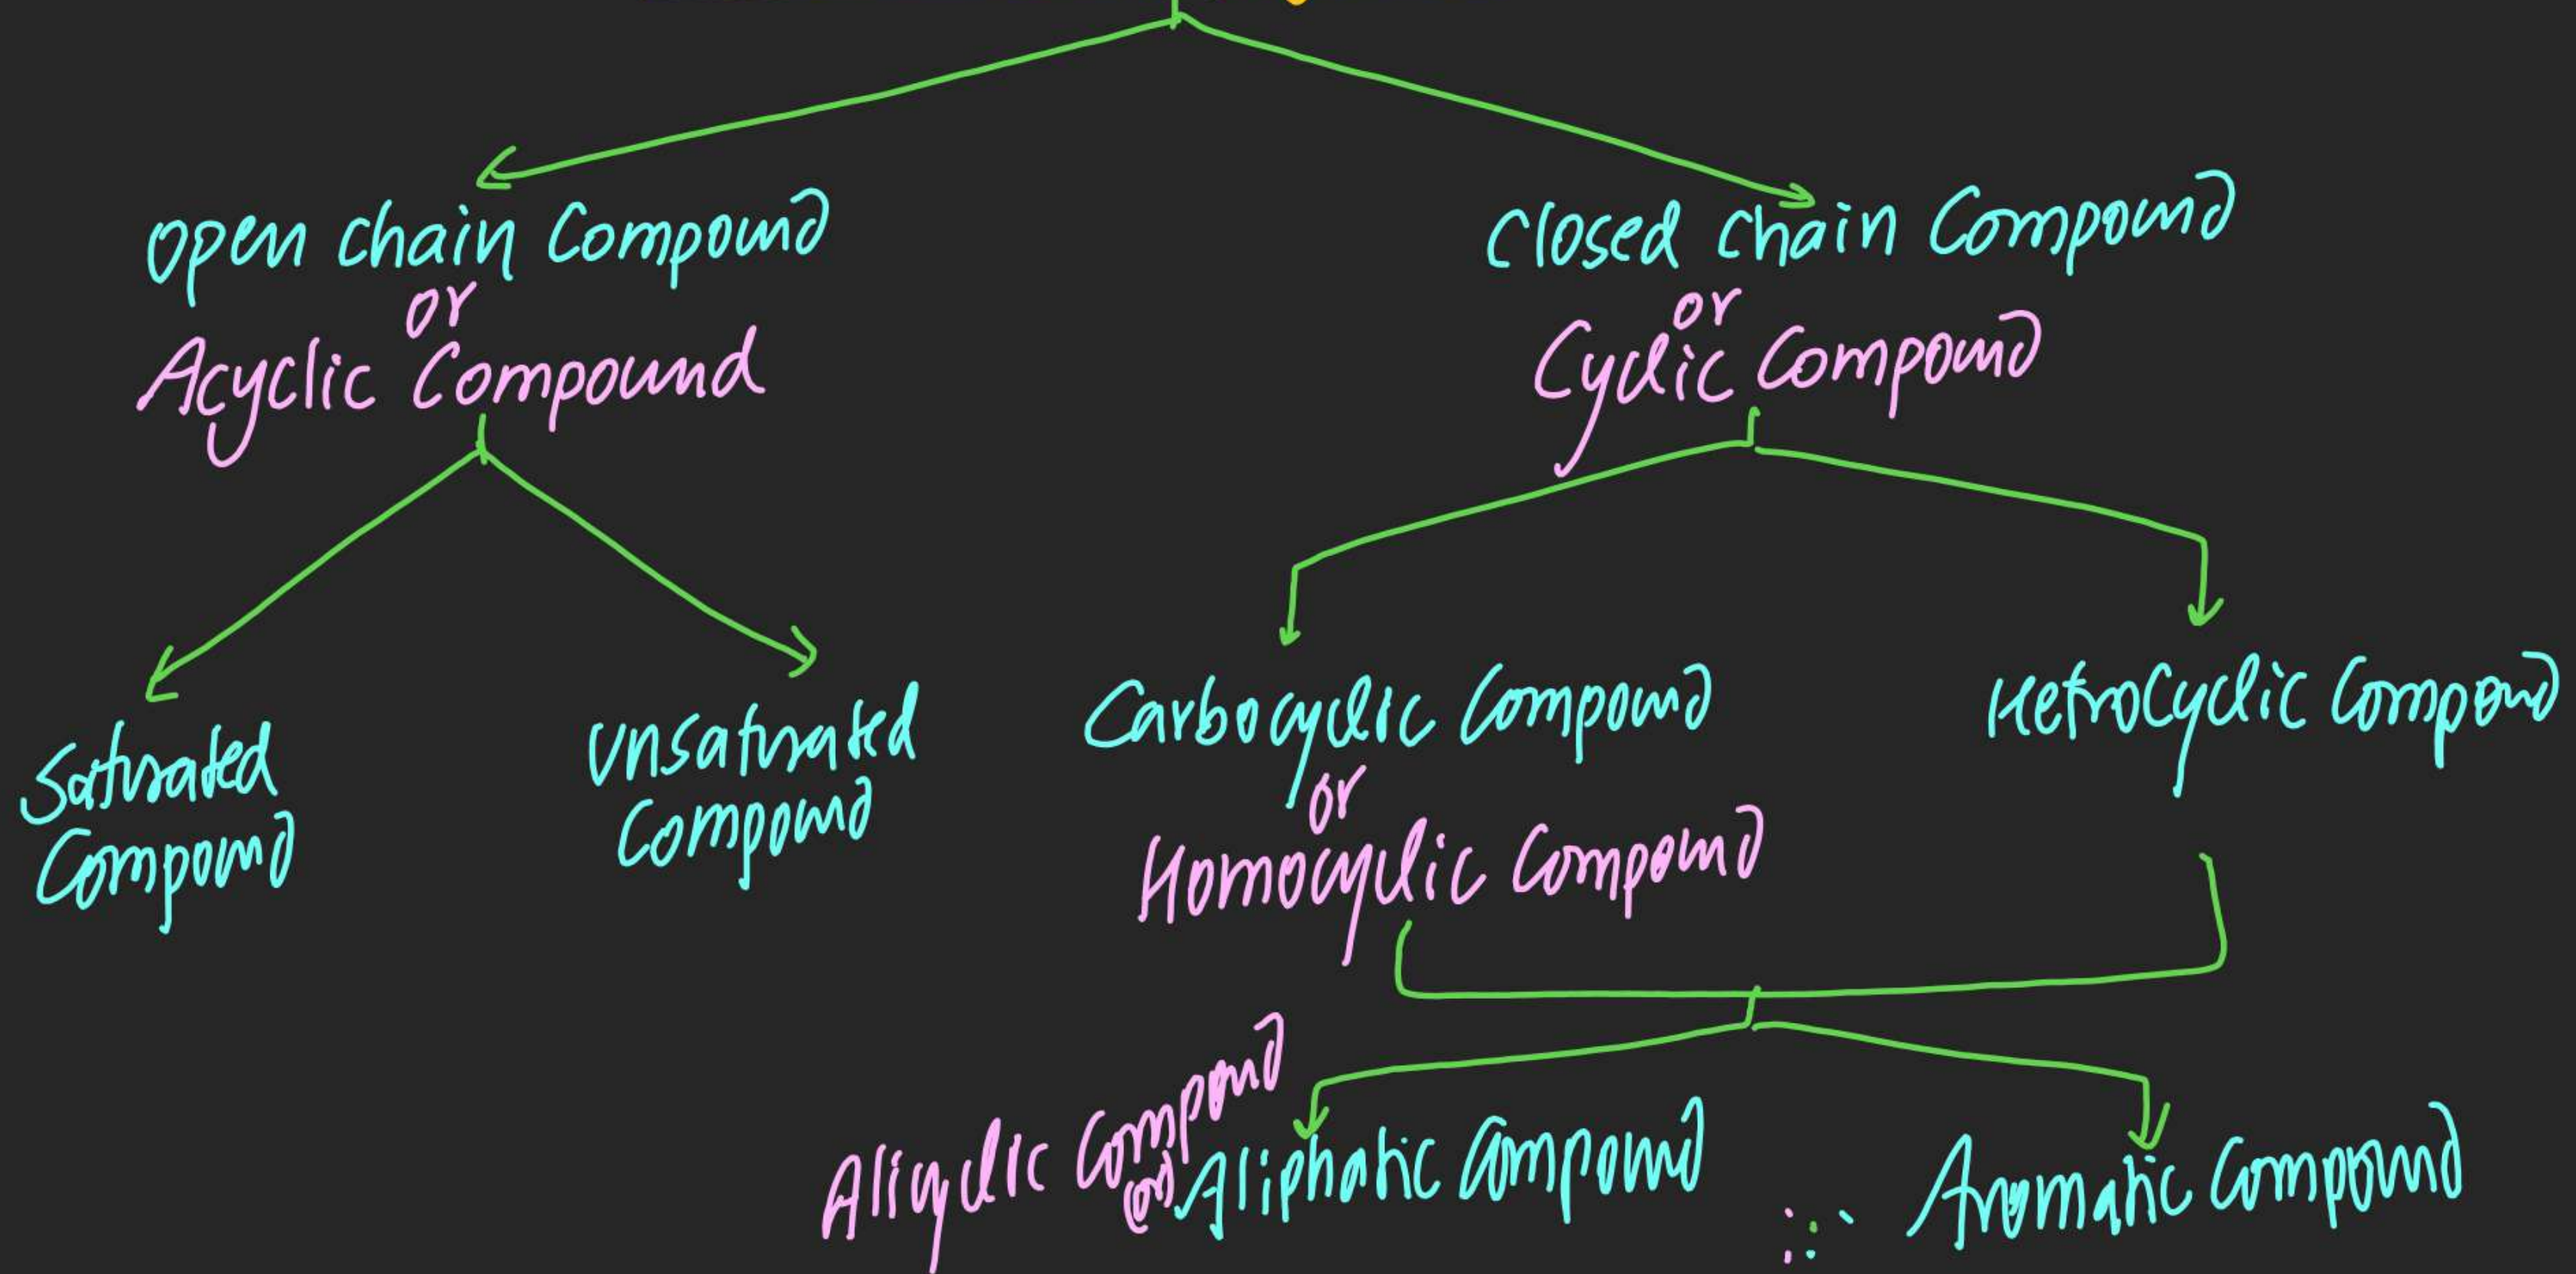 Open chain Compound
or
Acyclic Compound
Closed chain Compound
or
Cyclic Compound
Saturated
Compound
Unsaturated
Compound
Carbocyclic Compound
or
Homocyclic Compound
Hetrocyclic Compound
Alicyclic Compound
(or)
Aliphatic Compound
Aromatic Compound